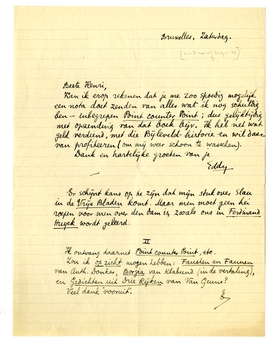 Bruxelles, Zaterdag.
Beste Henri,
Kan ik erop rekenen dat je me zoo spoedig mogelijk
een nota doet zenden van alles wat ik nog schuldig
ben – inbegrepen Point counter Point; dus gelijktijdig
met opzending van dat boek bijv. Ik heb nel wat
geld verdiend, met die Bijleveld-historie en wil daar-
van profiteeren (om mij weer schoon te wasschen).
Dank en hartelijke groeten van je
Eddy
Er schijnt kans op te zijn dat mijn stuk over Slau
in de Vrije Bladen komt. Maar men moet geen hei
roepen voor men over den dam is, zooals ons in Ferdinand
Huyck wordt geleerd.
II
Ik ontvang daarnet Point counter Point, etc.
Zou ik op zicht mogen hebben: Fausten en Faunen
van Anth. Donker, Borgia van Klabund (in de vertaling),
en Gedichten uit Drie Rijken van Van Geuns?
Veel dank vooruit.